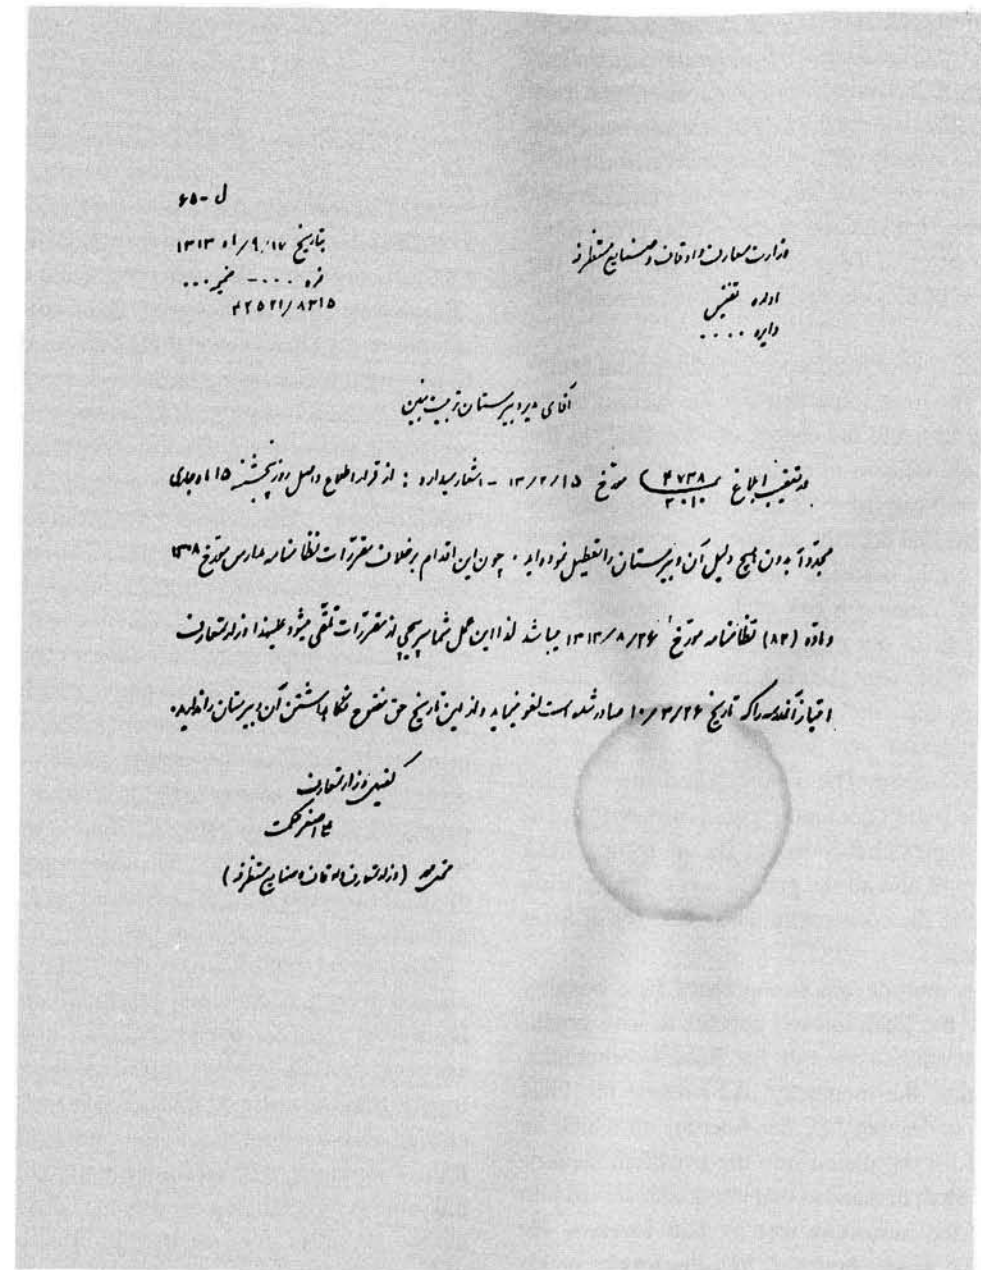 ل-۶۵
وزارت معارف و اوقاف و صنایع مستظرفه
بتاریخ ۹/۱۷/ ماه ۱۳۱۳
اداره تفتیش
نمره ۰۰۰۰ - ضمیمه ۰۰۰
دایره ۰۰۰۰
۴۲۵۲۱/۸۳۱۵
آقای مدیر دبیرستان تربیت بنین
در تعقیب ابلاغ ۴۷۳۸/۳۰۱۰ مورخ ۱۳/۲/۱۵ - اشعار میدارد : از قرار اطلاع واصل روز پنجشنبه ۱۵ ماه جاری
مجدداً بدون هیچ دلیل آن دبیرستان را تعطیل نموده‌اید ۰ چون این اقدام برخلاف مقررات نظامنامه مدارس مورخ ۱۳۰۸
و ماده (۸۲) نظامنامه مورخ ۱۳۱۳/۸/۲۶ میباشد لذا این عمل شما سرپیچی از مقررات تلقی میشود علیهذا وزارت معارف
امتیاز آن مدرسه را که تاریخ ۱۰/۳/۲۶ صادر شده است لغو مینماید و از این تاریخ حق مفتوح نگاهداشتن آن دبیرستان را ندارید.
کفیل وزارت معارف
علی اصغر حکمت
محل مهر (وزارت معارف و اوقاف و صنایع مستظرفه)